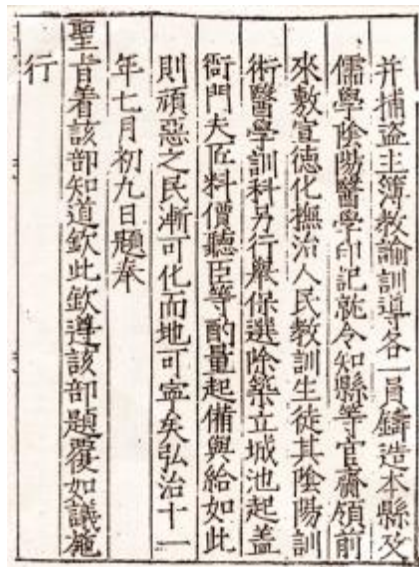 并捕盗主簿教諭訓導各一員鑄造本縣及
儒學陰陽醫學印記就令知縣等官齎領前
來敷宣德化撫治人民教訓生徒其陰陽訓
術醫學訓科另行舉保選除築立城池起盖
衙門夫匠料價聽臣等酌量起倩與給如此
則頑惡之民漸可化而地可寧矣弘治十一
年七月初九日題奉
聖旨着該部知道欽此欽遵該部題覆如議施
行